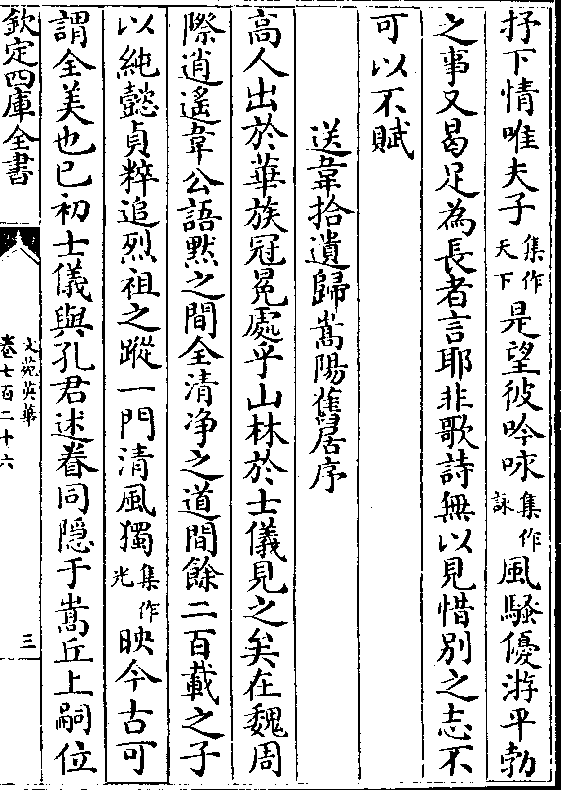 抒下情唯夫子集作天下是望彼吟咏集作詠風騷優游平勃
之事又曷足為長者言耶非歌詩無以見惜別之志不
可以不賦
送韋拾遺歸嵩陽舊居序
高人出於華族冠冕處乎山林於士儀見之矣在魏周
際逍遙韋公語黙之間全清净之道間餘二百載之子
以純懿貞粹追烈祖之蹤一門清風獨集作光映今古可
謂全美也已初士儀與孔君述睿同隠于嵩丘上嗣位
欽定四庫全書
文苑英華
卷七百二十六
三